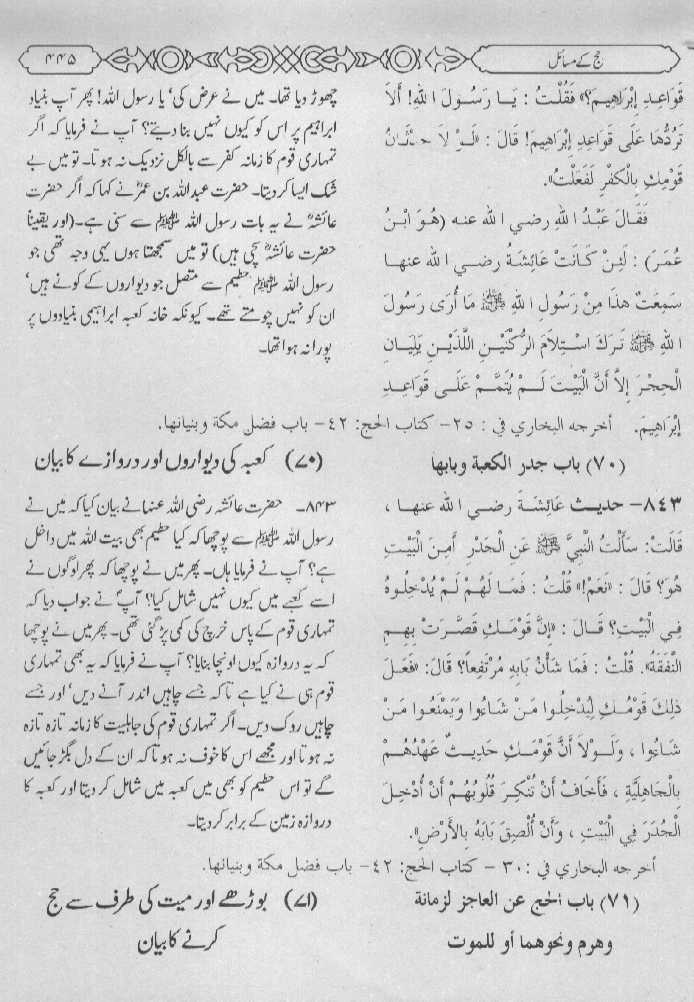 حج کے مسائل
۴۴۵
قَوَاعِدِ إِبْرَاهِيمَ؟» فَقُلْتُ : يَا رَسُولَ اللهِ! أَلاَ
تَرُدُّهَا عَلَى قَوَاعِدِ إِبْرَاهِيمَ! قَالَ : «لَوْ لاَ حِدْثَانُ
قَوْمِكِ بِالْكُفْرِ لَفَعَلْتُ».
فَقَالَ عَبْدُ اللهِ رضي الله عنه (هُوَ ابْنُ
عُمَرَ) : لَئِنْ كَانَتْ عَائِشَةُ رضي الله عنها
سَمِعَتْ هذَا مِنْ رَسُولِ اللهِ ﷺ مَا أُرَى رَسُولَ
اللهِ ﷺ تَرَكَ اسْتِلاَمَ الرُّكْنَيْنِ اللَّذَيْنِ يَلِيَانِ
الْحِجْرَ إِلاَّ أَنَّ الْبَيْتَ لَمْ يُتَمَّمْ عَلَى قَوَاعِدِ
إِبْرَاهِيمَ.
چھوڑ دیا تھا۔ میں نے عرض کی' یا رسول اللہ! پھر آپ بنیاد
ابراہیم پر اس کو کیوں نہیں بنا دیتے؟ آپ نے فرمایا کہ اگر
تمہاری قوم کا زمانہ کفر سے بالکل نزدیک نہ ہوتا۔ تو میں بے
شک ایسا کر دیتا۔ حضرت عبداللہ بن عمرؓ نے کہا کہ اگر حضرت
عائشہؓ نے یہ بات رسول اللہ ﷺ سے سنی ہے۔ (اور یقیناً
حضرت عائشہؓ سچی ہیں) تو میں سمجھتا ہوں یہی وجہ تھی جو
رسول اللہ ﷺ حطیم سے متصل جو دیواروں کے کونے ہیں'
ان کو نہیں چومتے تھے۔ کیونکہ خانہ کعبہ ابراہیمی بنیادوں پر
پورا نہ ہوا تھا۔
أخرجه البخاري في : ٢٥- كتاب الحج: ٤٢- باب فضل مكة وبنيانها.
(٧٠) باب جدر الكعبة وبابها
(۷۰) کعبہ کی دیواروں اور دروازے کا بیان
٨٤٣- حديث عَائِشَةَ رضي الله عنها ،
قَالَتْ: سَأَلْتُ النَّبِيَّ ﷺ عَنِ الْجَدْرِ أَمِنَ الْبَيْتِ
هُوَ؟ قَالَ : «نَعَمْ!» قُلْتُ : فَمَا لَهُمْ لَمْ يُدْخِلُوهُ
فِي الْبَيْتِ؟ قَالَ : «إِنَّ قَوْمَكِ قَصَّرَتْ بِهِمِ
النَّفَقَةُ». قُلْتُ : فَمَا شَأْنُ بَابِهِ مُرْتَفِعاً؟ قَالَ: «فَعَلَ
ذلِكَ قَوْمُكِ لِيُدْخِلُوا مَنْ شَاءُوا وَيَمْنَعُوا مَنْ
شَاءُوا ، وَلَوْلاَ أَنَّ قَوْمَكِ حَدِيثٌ عَهْدُهُمْ
بِالْجَاهِلِيَّةِ ، فَأَخَافُ أَنْ تُنْكِرَ قُلُوبُهُمْ أَنْ أُدْخِلَ
الْجُدَرَ فِي الْبَيْتِ ، وَأَنْ أُلْصِقَ بَابَهُ بِالأَرْضِ».
۸۴۳۔ حضرت عائشہ رضی اللہ عنہا نے بیان کیا کہ میں نے
رسول اللہ ﷺ سے پوچھا کہ کیا حطیم بھی بیت اللہ میں داخل
ہے؟ آپ نے فرمایا ہاں۔ پھر میں نے پوچھا کہ پھر لوگوں نے
اسے کعبے میں کیوں نہیں شامل کیا؟ آپؐ نے جواب دیا کہ
تمہاری قوم کے پاس خرچ کی کمی پڑ گئی تھی۔ پھر میں نے پوچھا
کہ یہ دروازہ کیوں اونچا بنایا؟ آپ نے فرمایا کہ یہ بھی تمہاری
قوم ہی نے کیا ہے تاکہ جسے چاہیں اندر آنے دیں' اور جسے
چاہیں روک دیں۔ اگر تمہاری قوم کی جاہلیت کا زمانہ تازہ تازہ
نہ ہوتا اور مجھے اس کا خوف نہ ہوتا کہ ان کے دل بگڑ جائیں
گے تو اس حطیم کو بھی میں کعبہ میں شامل کر دیتا اور کعبہ کا
دروازہ زمین کے برابر کر دیتا۔
أخرجه البخاري في :٣٠ - كتاب الحج: ٤٢- باب فضل مكة وبنيانها.
(٧١) باب الحج عن العاجز لزمانة
وهرم ونحوهما أو للموت
(۷۱) بوڑھے اور میت کی طرف سے حج
کرنے کا بیان